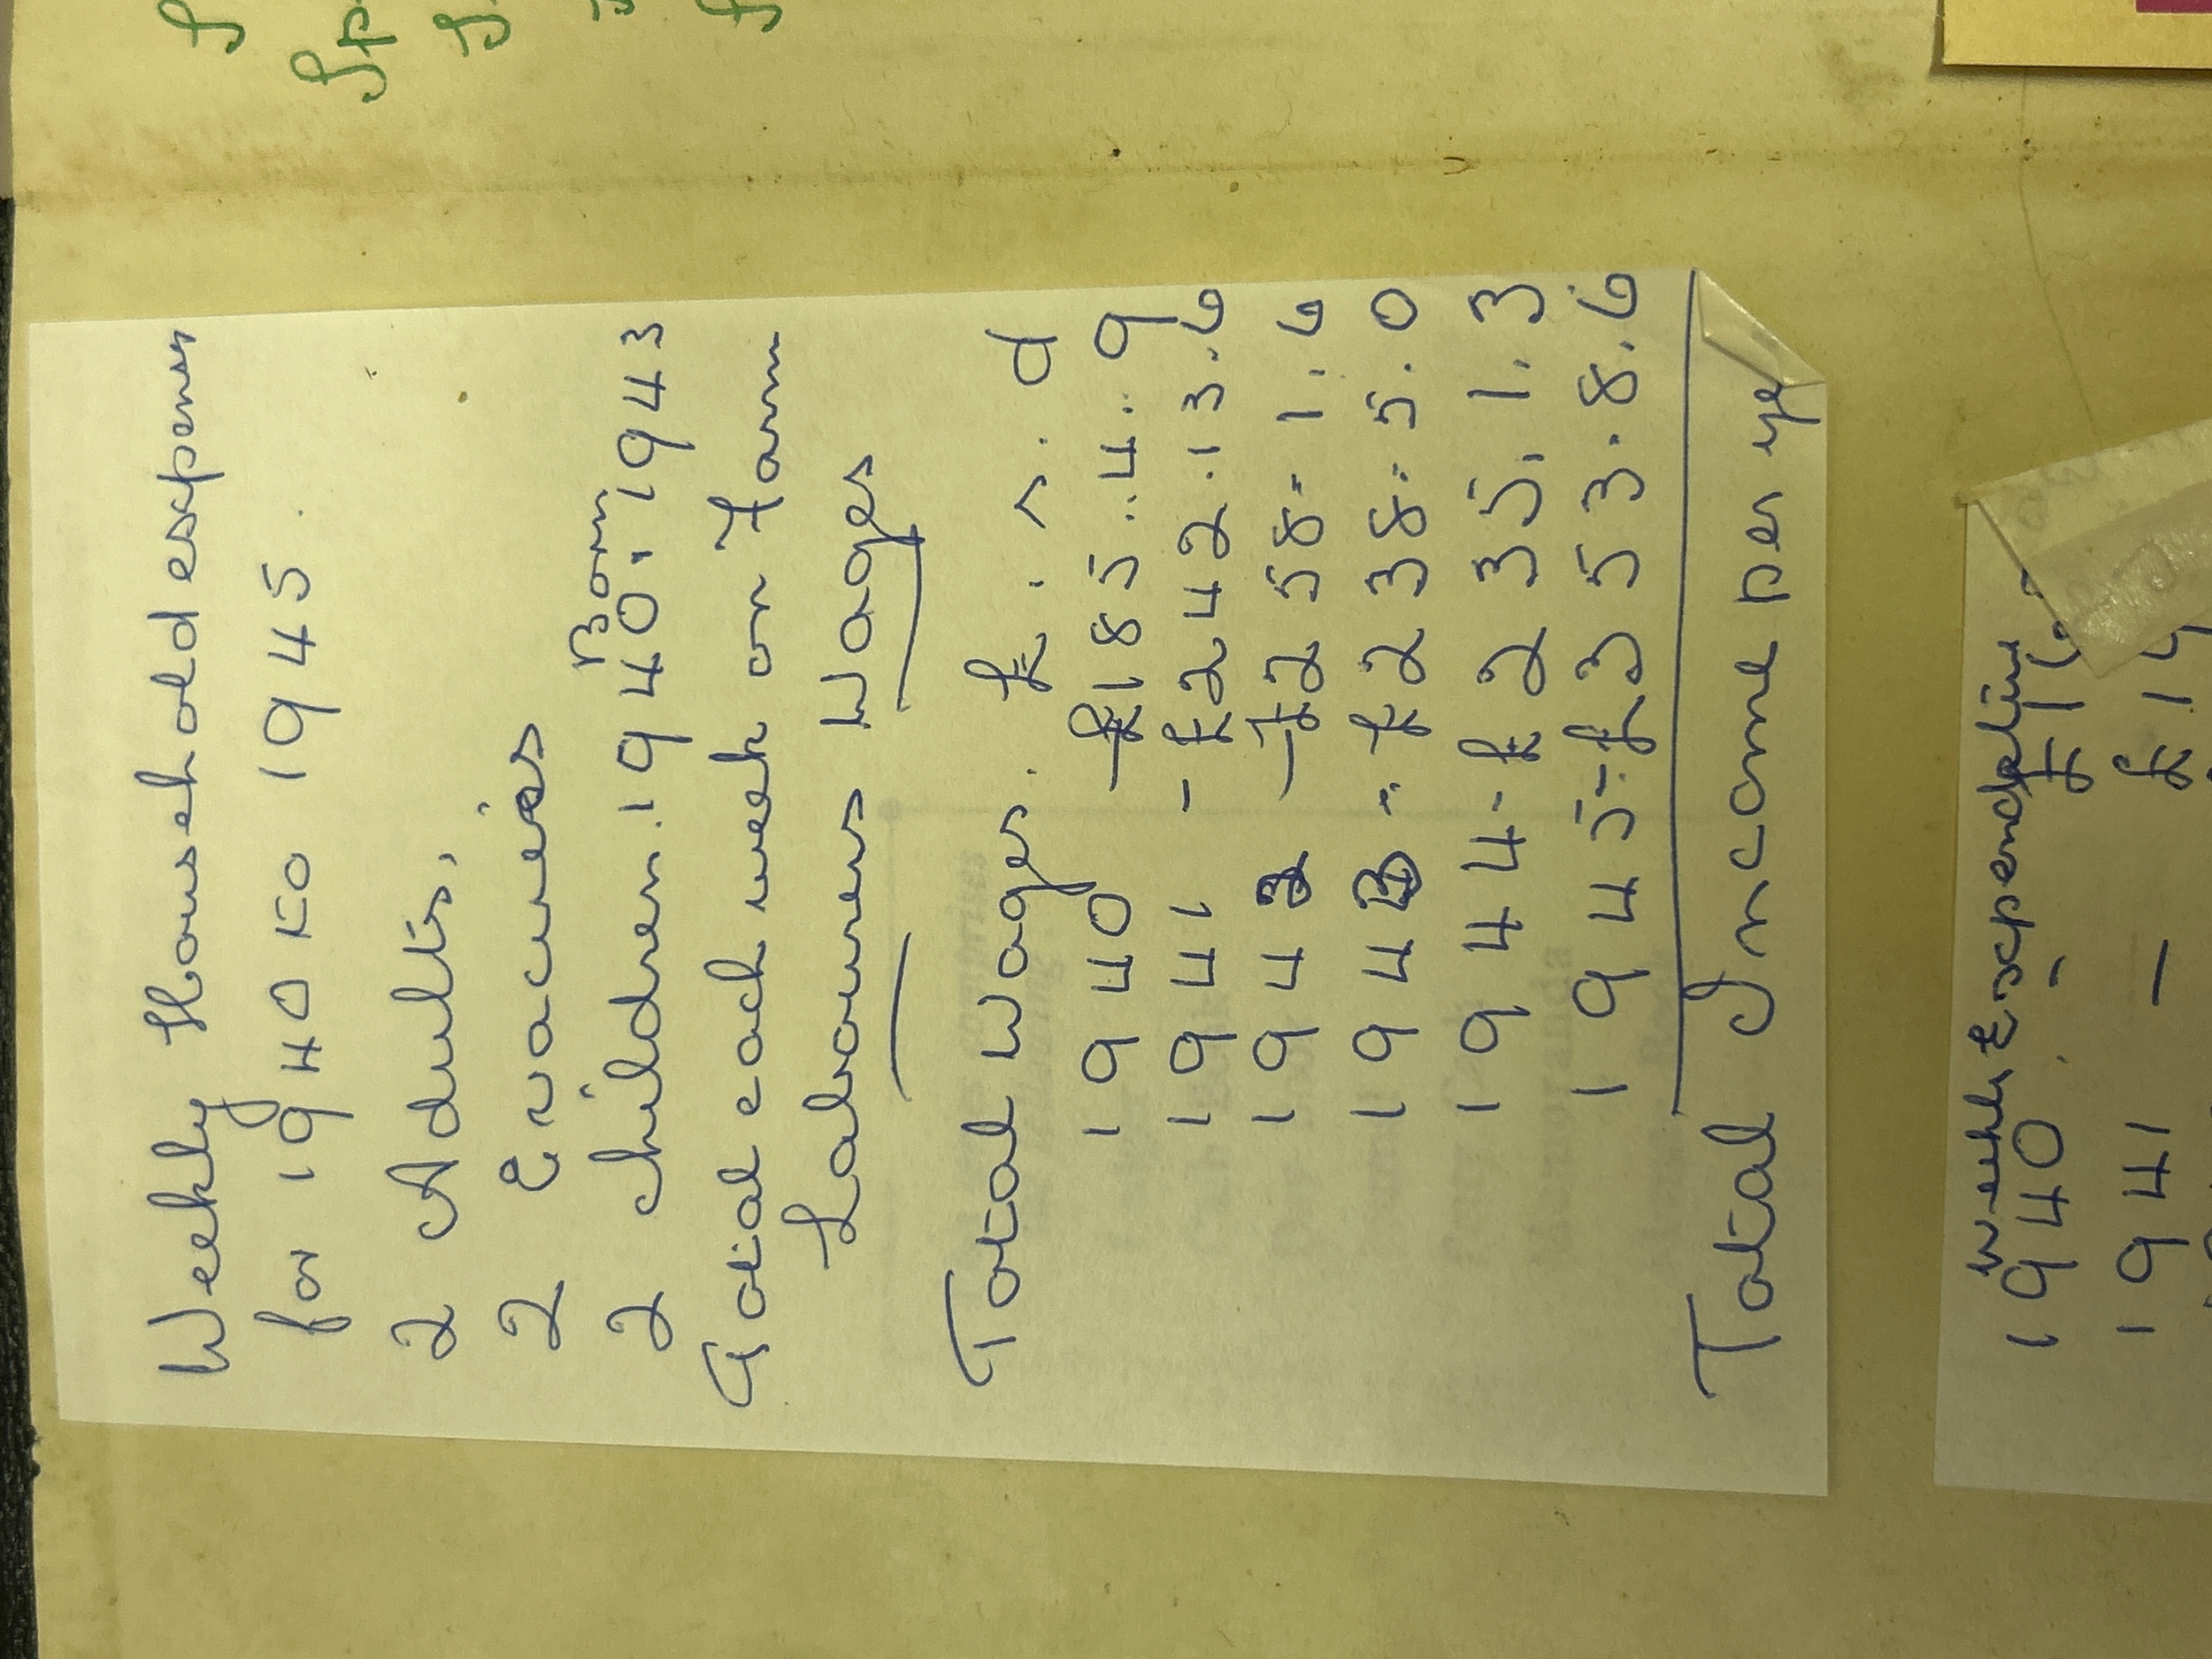 Weekly Household expenses
for 1940 to 1945.
2 Adults,
2 Evacuees
Born
2 children. 1940., 1943
Total each week on Farm
Labourers Wages
Total Wages. £. s. d
1940 – £185..4..9
1941 – £242.13.6
1942 – £258.1.6
1943 - £238.5.0
1944 - £235.1.3
1945 - £353.8.6
Total Income per
Week Expenditure
1940. -
1941 –